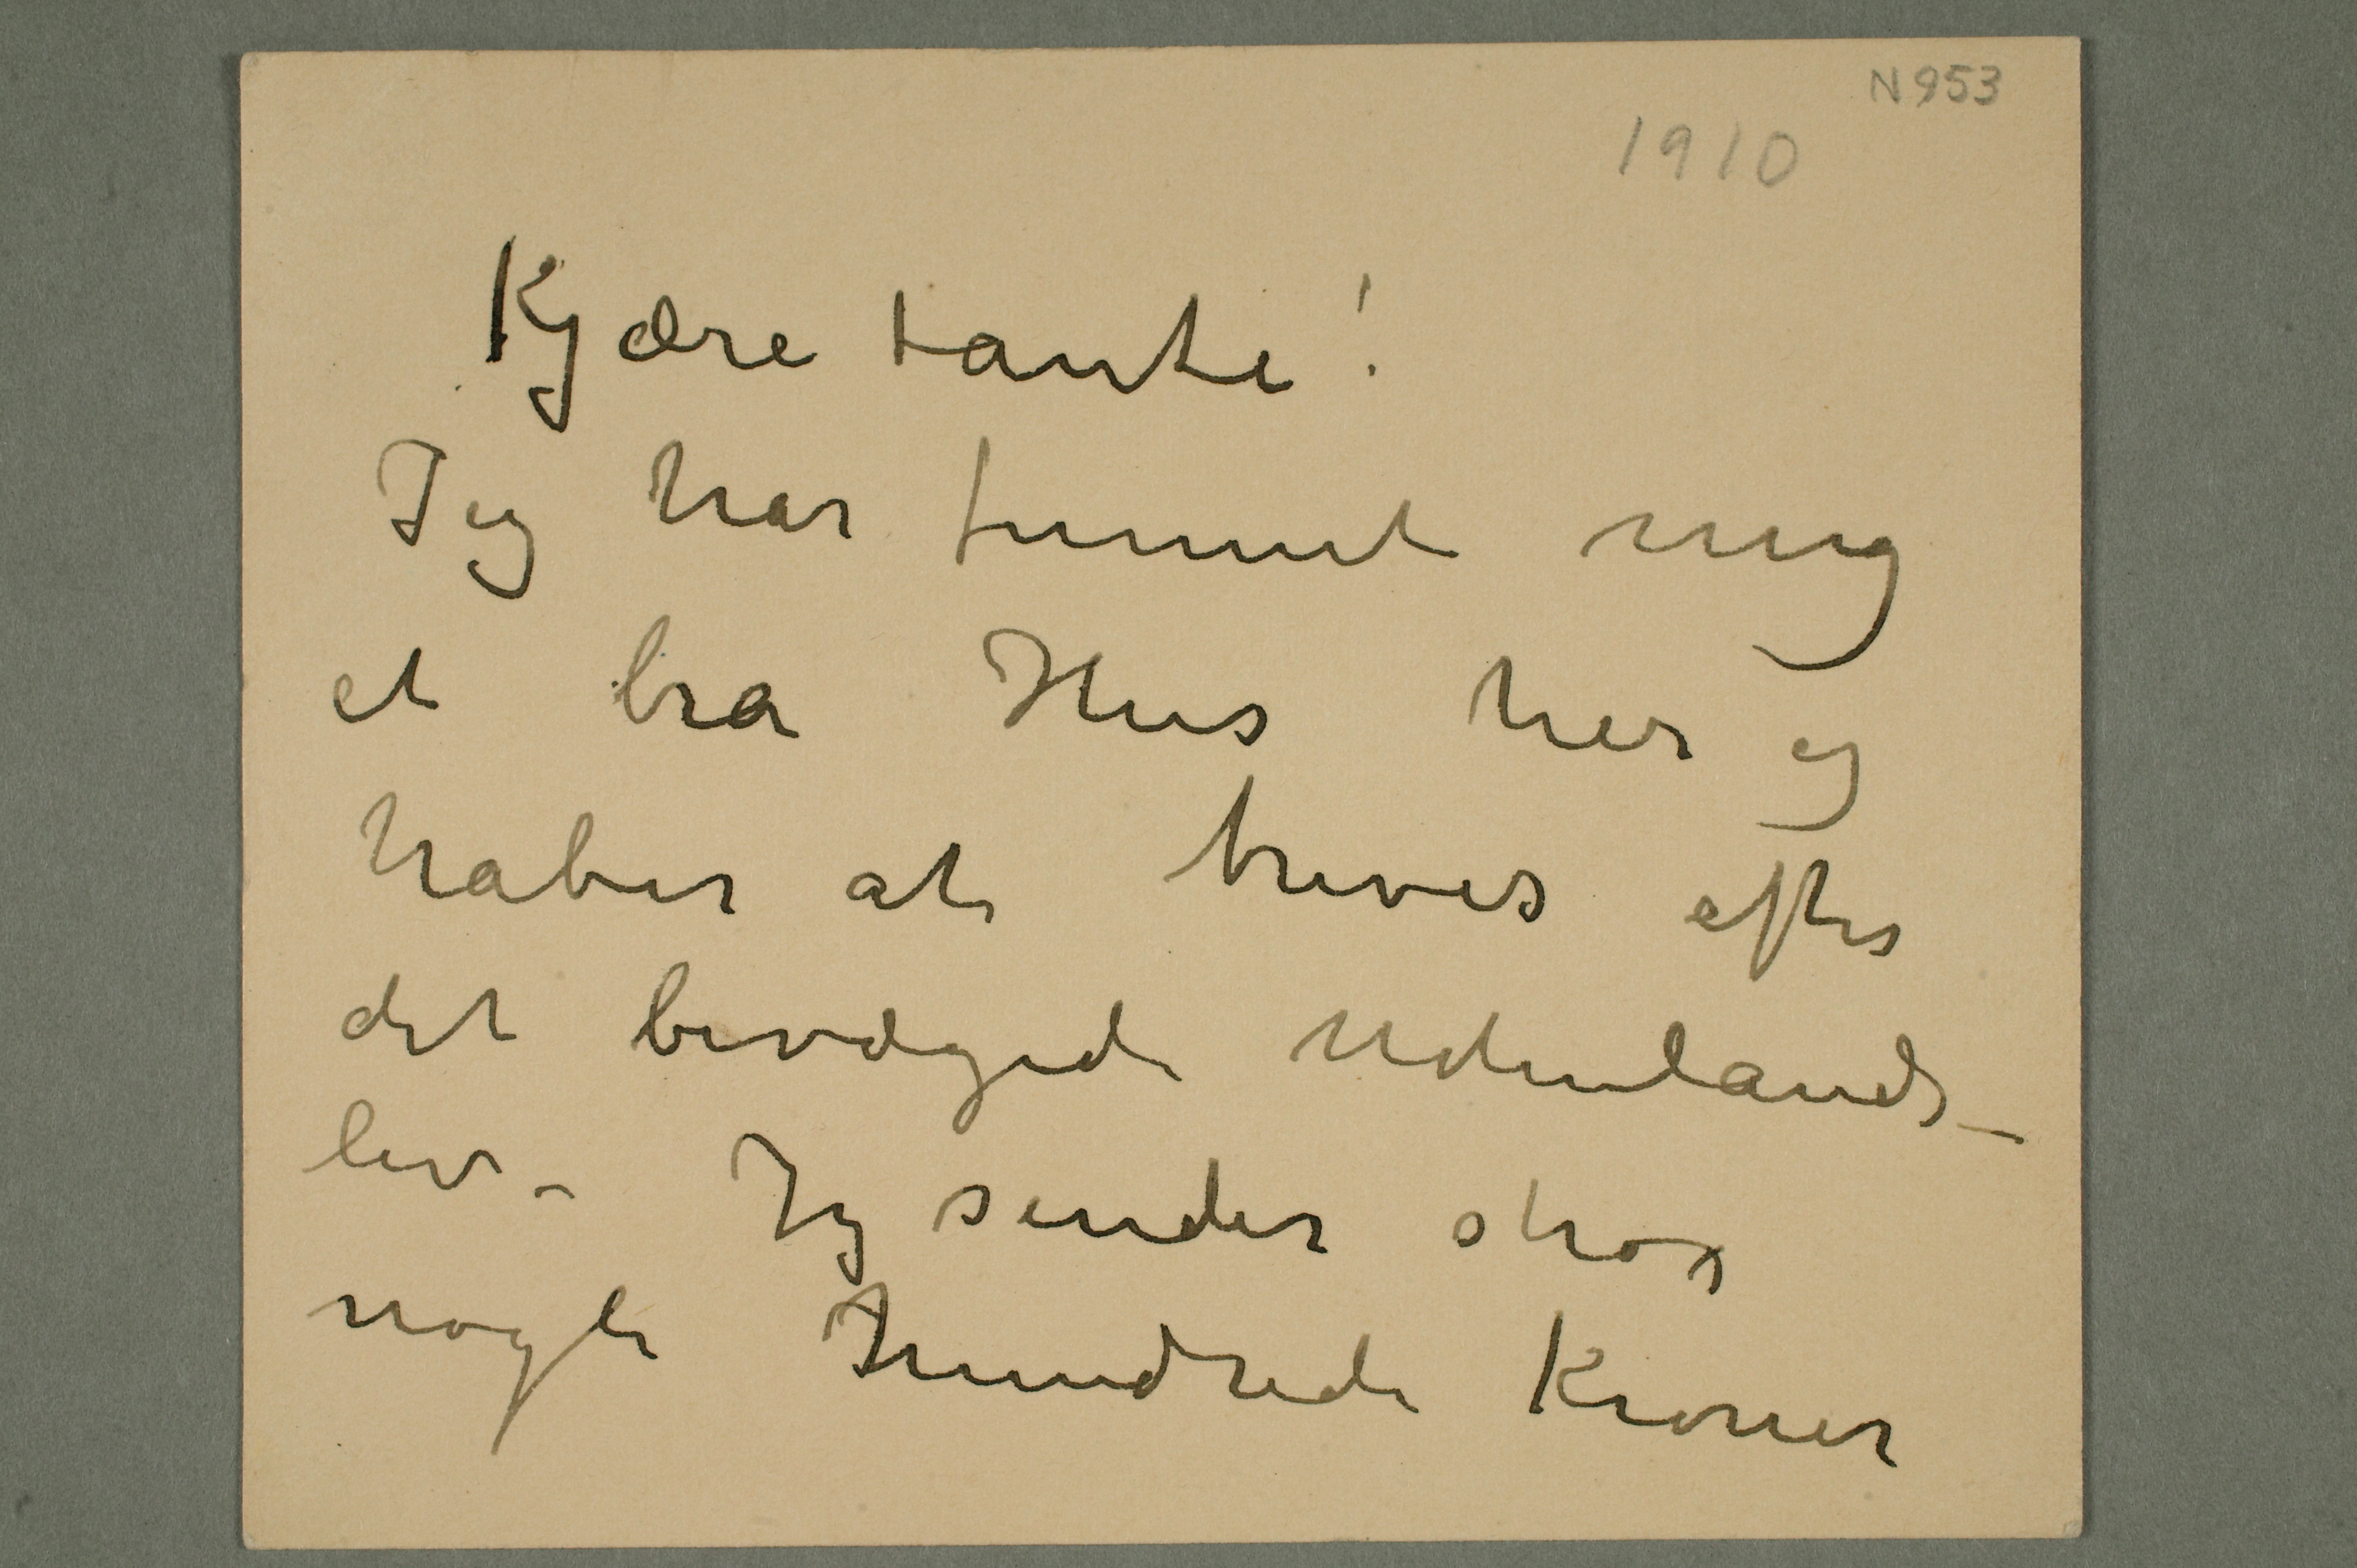 N 953
1910
Kjære tante!
Jeg har funnet mig
et bra Hus her og
haber at trives efter
det bevægede Udenlands-
liv – Jeg sender strax
nogle Hundrede Kroner